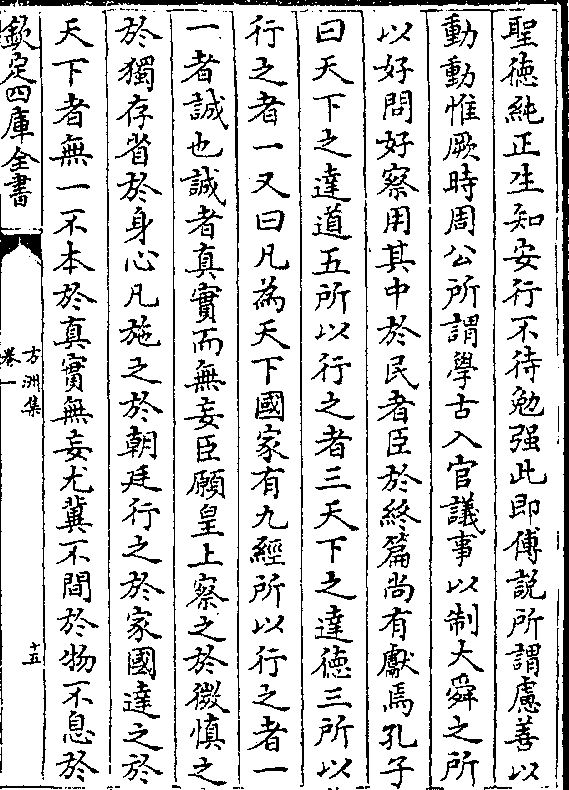 聖徳純正生知安行不待勉强此即傅説所謂慮善以
動動惟厥時周公所謂學古入官議事以制大舜之所
以好問好察用其中於民者臣於終篇尚有獻焉孔子
曰天下之達道五所以行之者三天下之達徳三所以
行之者一又曰凡為天下國家有九經所以行之者一
一者誠也誠者真實而無妄臣願皇上察之於微慎之
於獨存省於身心凡施之於朝廷行之於家國達之於
天下者無一不本於真實無妄尤冀不間於物不息於
欽定四庫全書
方洲集
卷一
十五